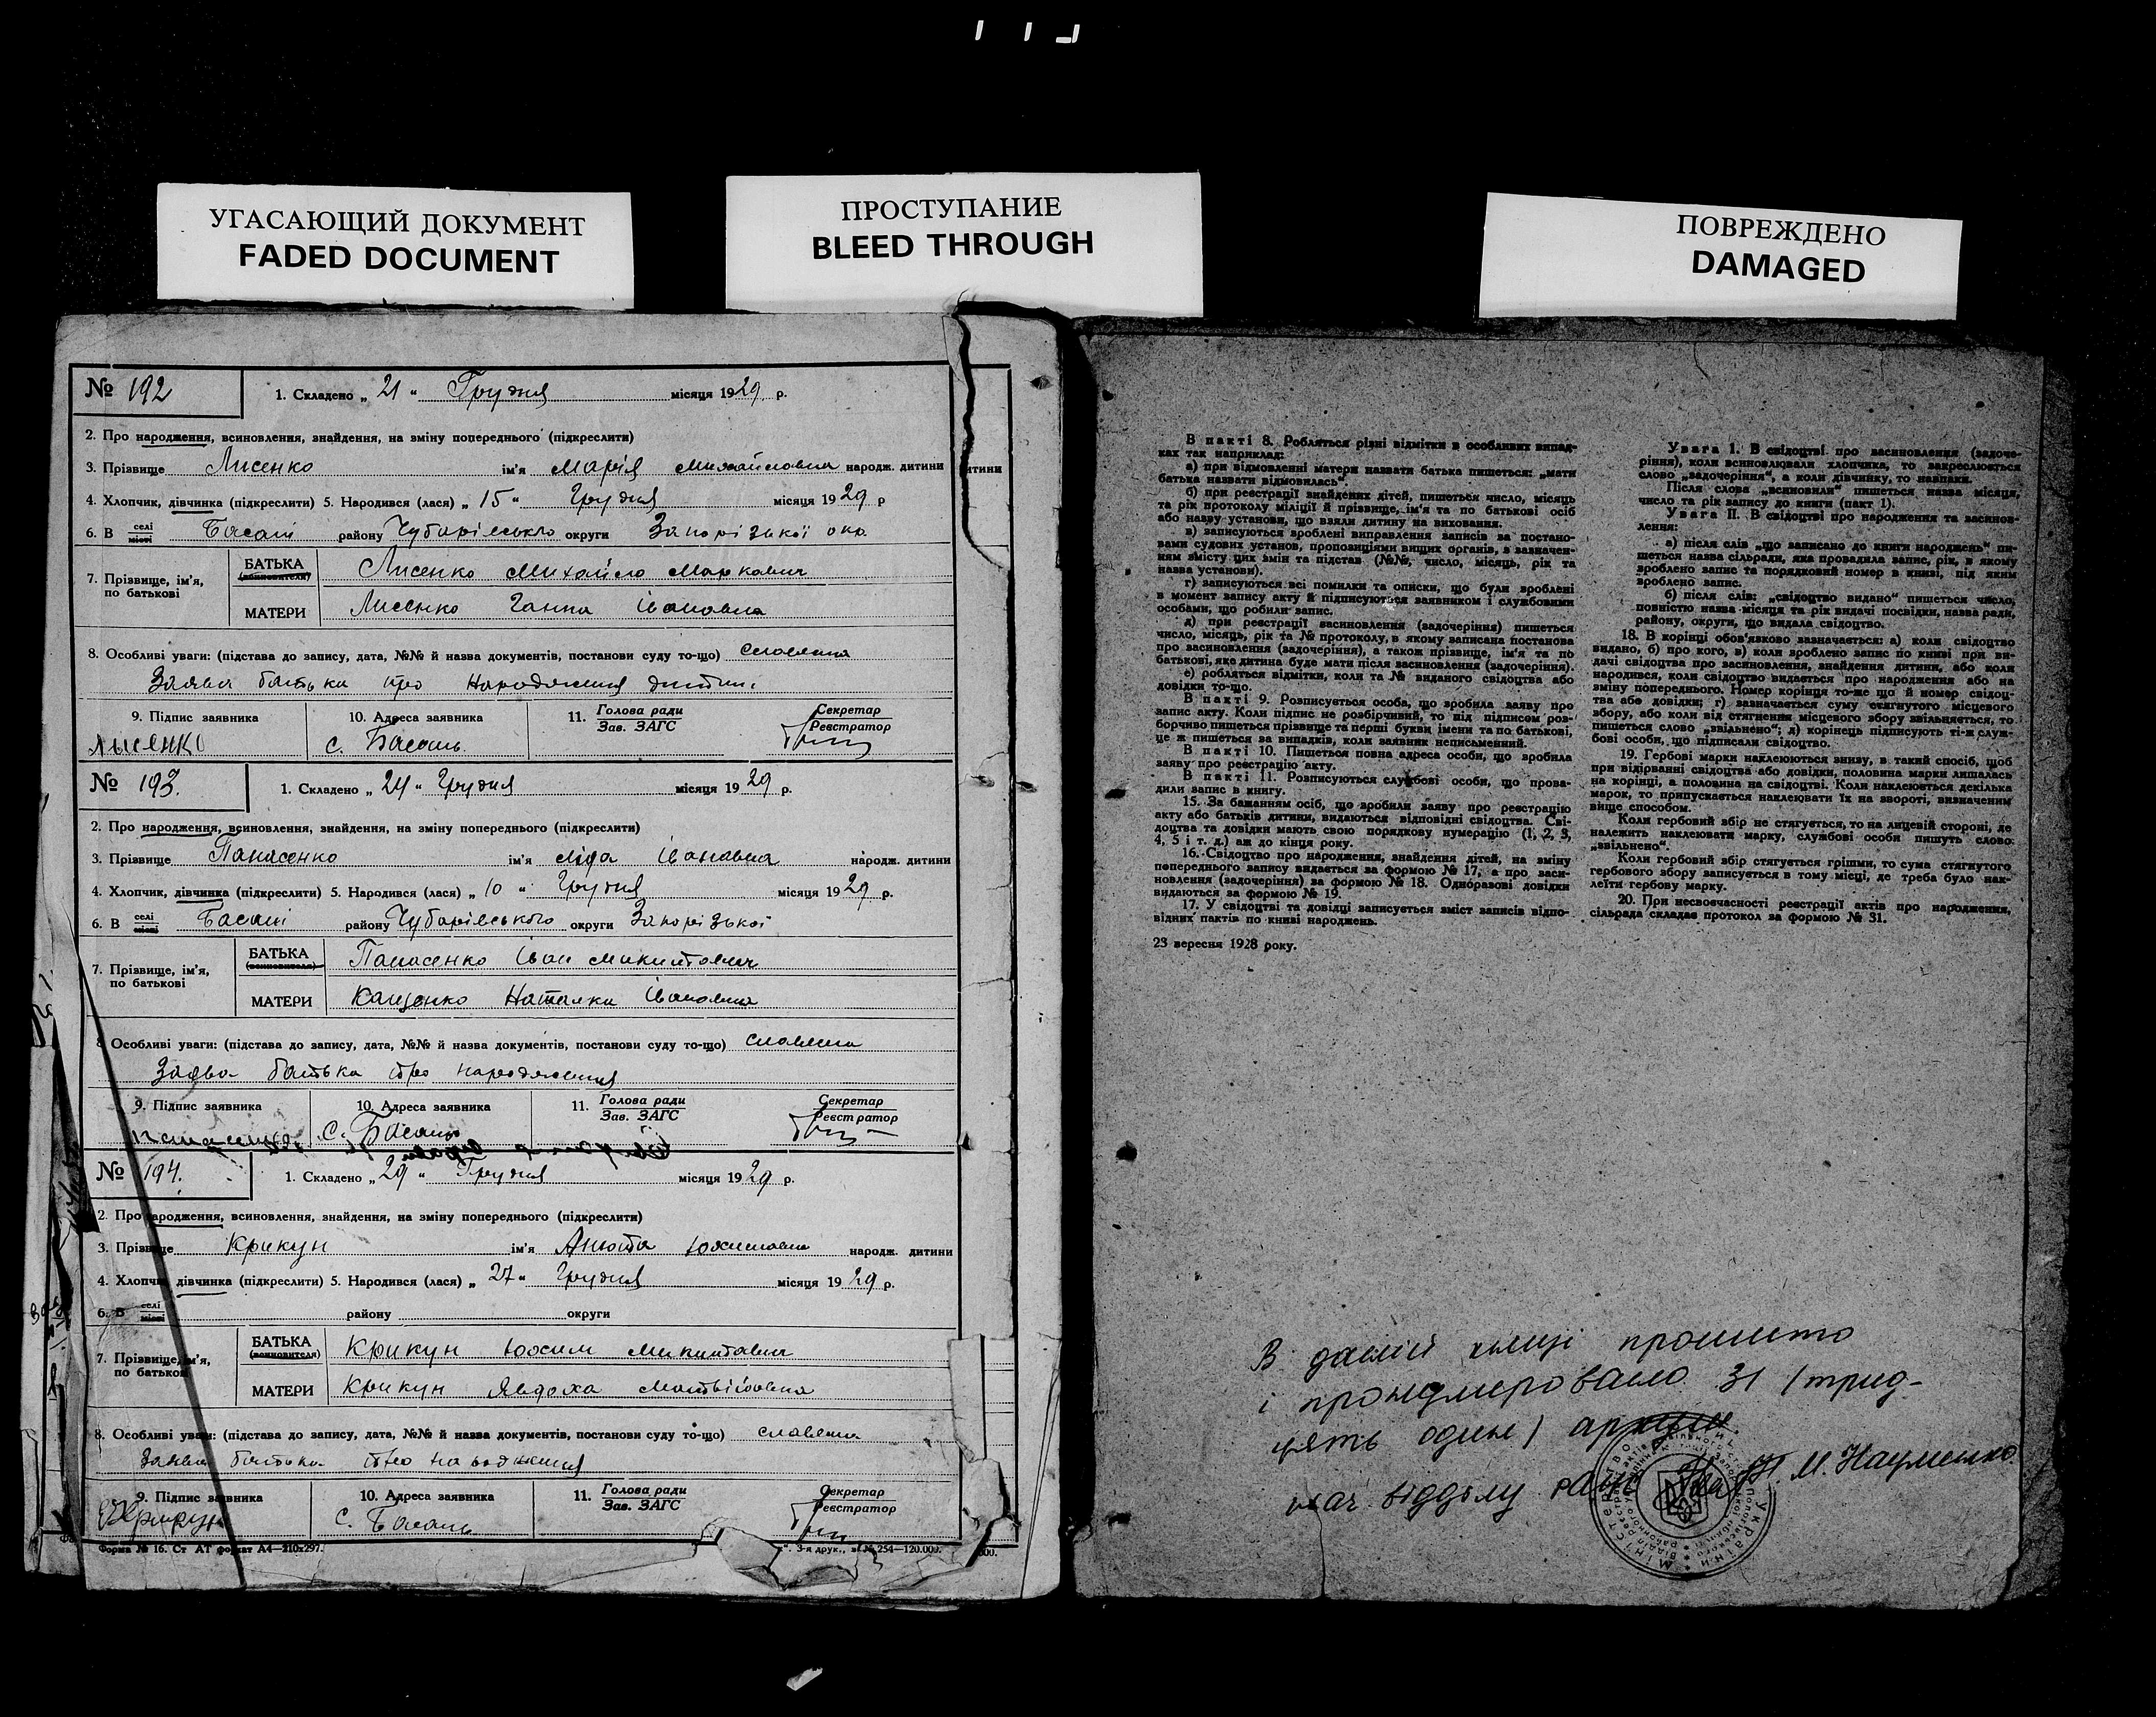 УГАСАЮЩИЙ ДОКУМЕНТ
FADED DOCUMENT
ПРОСТУПАНИЕ
BLEED THROUGH
ПОВРЕЖДЕНО
DAMAGED
№ 192
1. Складено „ 21 “ Грудня місяця 1929 р.
2. Про народження, всиновлення, знайдення, на зміну попереднього (підкреслити)
3. Прізвище Лисенко ім'я Марія Михайловна народж. дитини
4. Хлопчик, дівчинка (підкреслити) 5. Народився (лася) „ 15 “ Грудня місяця 1929 р
6. В селі місті Басані району Чубарівського округи Запорізької окр.
7. Прізвище, ім'я, по батькові
БАТЬКА Лисенко Михайло Маркович
МАТЕРИ Лисенко Ганна Івановна
8. Особливі уваги: (підстава до запису, дата, №№ й назва документів, постанови суду то-що) Славяна
Заява батька про народження дитини
9. Підпис заявника 10. Адреса заявника 11. Голова ради Секретар
Зав. ЗАГС Реєстратор
Лысенко с. Басань
№ 193.
1. Складено „ 24 “ Грудня місяця 1929 р.
2. Про народження, всиновлення, знайдення, на зміну попереднього (підкреслити)
3. Прізвище Панасенко ім'я Ліда Івановна народж. дитини
4. Хлопчик, дівчинка (підкреслити) 5. Народився (лася) „ 10 “ Грудня місяця 1929 р.
6. В селі місті Басані району Чубарівського округи Запорізької
7. Прізвище, ім'я, по батькові
БАТЬКА Панасенко Іван Микитович
МАТЕРИ Кащенко Наталка Івановна
8 Особливі уваги: (підстава до запису, дата, №№ й назва документів, постанови суду то-що) Славяна
Заява батька про народження
9. Підпис заявника 10. Адреса заявника 11. Голова ради Секретар
Зав. ЗАГС Реєстратор
с. Басань
№ 194.
1. Складено „ 29 “ Грудня місяця 1929 р.
2. Про народження, всиновлення, знайдення, на зміну попереднього (підкреслити)
3. Прізвище Крикун ім'я Анюта Юхимовна народж. дитини
4. Хлопчик дівчинка (підкреслити) 5. Народився (лася) „ 27 “ Грудня місяця 1929 р.
6. В селі місті району округи
7. Прізвище, ім'я, по батькові
БАТЬКА (всиновителя) Крикун Юхим Микитович
МАТЕРИ Крикун Явдоха Матвіївна
8. Особливі уваги: (підстава до запису, дата, №№ й назва документів, постанови суду то-що) славяни
Заява батька про народження
9. Підпис заявника 10. Адреса заявника 11. Голова ради Секретар
Зав. ЗАГС Реєстратор
Крикун с. Басань
Форма № 16. Ст АТ формат А4—210х297. 3-я друк., № 254—120.000.
В пакті 8. Робляться різні відмітки в особливих випад-
ках так наприклад:
а) при відмовленні матери назвати батька пишеться: „мати
батька назвати відмовилась“.
б) при реєстрації знайдених дітей, пишеться число, місяць
та рік протоколу міліції й прізвище, ім'я та по батькові осіб
або назву установи, що взяли дитину на виховання.
в) записуються зроблені виправлення записів за постано-
вами судових установ, пропозиціями вищих органів, з зазначен-
ням змісту цих змін та підстав (№№, число, місяць, рік та
назва установи).
г) записуються всі помилки та описки, що були зроблені
в момент запису акту й підписуються заявником і службовими
особами, що робили запис.
д) при реєстрації всиновлення (задочеріння) пишеться
число, місяць, рік та № протоколу, в якому записана постанова
про всиновлення (задочеріння), а також прізвище, ім'я та по
батькові, яке дитина буде мати після всиновлення (задочеріння).
е) робляться відмітки, коли та № виданого свідоцтва або
довідки то-що.
В пакті 9. Розписується особа, що зробила заяву про
запис акту. Коли підпис не розбірчивий, то під підписом роз-
борчиво пишеться прізвище та перші букви імени та по батькові,
це ж пишеться за випадків, коли заявник неписьменний.
В пакті 10. Пишеться повна адреса особи, що зробила
заяву про реєстрацію акту.
В пакті 11. Розписуються службові особи, що прова-
дили запис в книгу.
15. За бажанням осіб, що зробили заяву про реєстрацію
акту або батьків дитини, видаються відповідні свідоцтва. Сві-
доцтва та довідки мають свою порядкову нумерацію (1, 2, 3,
4, 5 і т. д.) аж до кінця року.
16. Свідоцтво про народження, знайдення дітей, на зміну
попереднього запису видається за формою № 17, а про заси-
новлення (задочеріння) за формою № 18. Одноразові довідки
видаються за формою № 19.
17. У свідоцтві та довідці записується зміст записів відпо-
відних пактів по книзі народжень.
23 вересня 1928 року.
Увага 1. В свідоцтві про засиновлення (задоче-
ріння), коли всиновлювали хлопчика, то закреслюється
слово „задочеріння“, а коли дівчинку, то навпаки.
Після слова „всиновили“ пишеться назва місяця,
число та рік запису до книги (пакт 1).
Увага II. В свідоцтві про народження та засинов-
лення:
а) після слів „що записано до книги народжень“ пи-
шеться назва сільради, яка провадила запис, рік, в якому
зроблено запис та порядковий номер в книзі, під яким
зроблено запис.
б) після слів: „свідоцтво видано“ пишеться число,
повністю назва місяця та рік видачі посвідки, назва ради,
району, округи, що видала свідоцтво.
18. В корінці обов'язково зазначається: а) коли свідоцтво
видано, б) про кого, в) коли зроблено запис по книзі при ви-
дачі свідоцтва про засиновлення, знайдення дитини, або коли
народився, коли свідоцтво видається про народження або на
зміну попереднього. Номер корінця то-же що й номер свідоц-
тва або довідки; г) зазначається суму стягнутого місцевого
збору, або коли від стягнення місцевого збору звільняється, то
пишеться слово „звільнено“; д) корінець підписують ті-ж служ-
бові особи, що підписали свідоцтво.
19. Гербові марки наклеюються внизу, в такий спосіб, щоб
при відірванні свідоцтва або довідки, половина марки лишалась
на корінці, а половина на свідоцтві. Коли наклеюється декілька
марок, то припускається наклеювати їх на звороті, визначеним
вище способом.
Коли гербовий збір не стягується, то на лицевій стороні, де
належить наклеювати марку, службові особи пишуть слово:
„звільнено“.
Коли гербовий збір стягується грішми, то сума стягнутого
гербового збору записується в тому місці, де треба було нак-
леїти гербову марку.
20. При несвоєчасності реєстрації актів про народження,
сільрада складає протокол за формою № 31.
В даній книзі прошито
і пронумеровано 31 (трид-
цять один) аркуш
нач. відділу рацс Т. М. Науменко